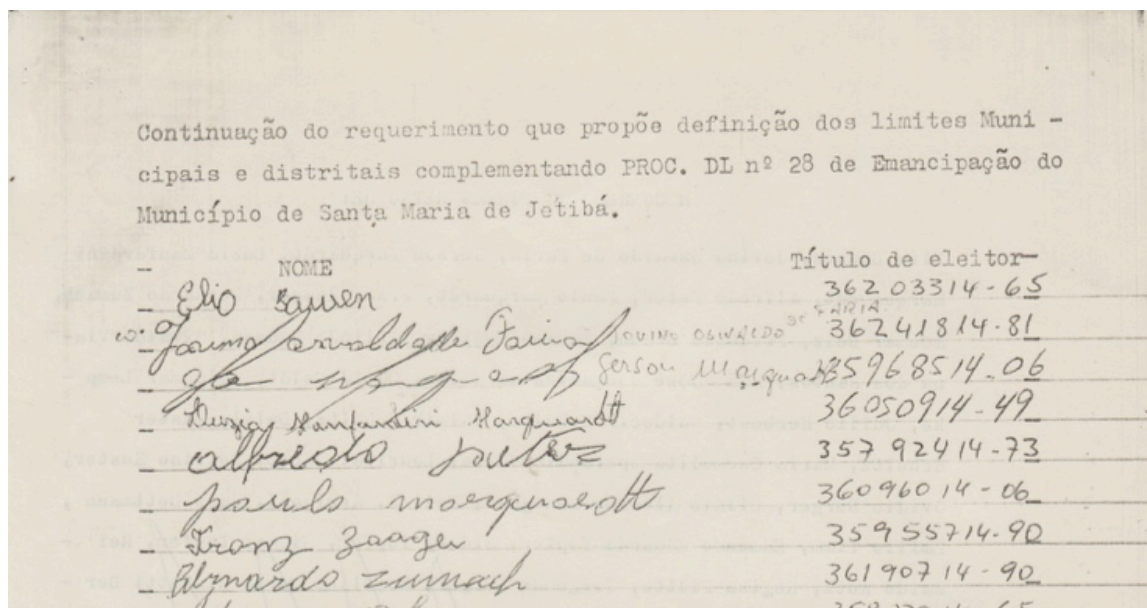 Continuação do requerimento que propõe definição dos limites Muni -
cipais e distritais complementando PROC. DL nº 28 de Emancipação do
Município de Santa Maria de Jetibá.
NOME Título de eleitor
Elio 36203314-65
JOVINO OSIVALDO DE FARIA 36241814-81
Gerson Marquardt 35968514-06
Marquardt 36050914-49
Alfredo 35792414-73
paulo marquardt 36096014-06
Franz Zaager 35955714-90
Bernardo Zumach 36190714-90